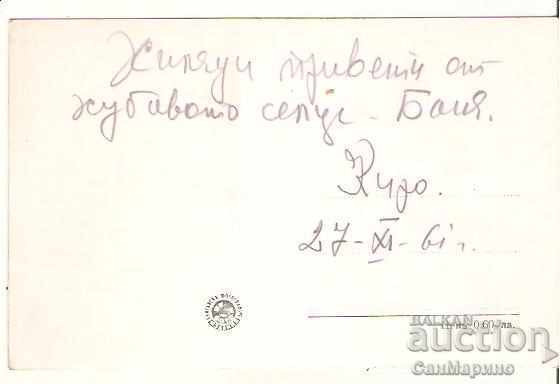 Хиляди привети от
хубавото селце - Баня.
Киро.
27-XI-61 г.
Цена 0.60 лв.
BALKAN
auction
СанМарино